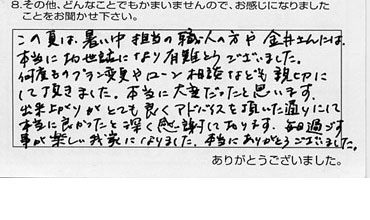 8.その他、どんなことでもかまいませんので、お感じになりました
ことをお聞かせ下さい。
この夏は、暑い中 担当の職人の方や 金井さんには、
本当に お世話になり 有難とうございました。
何度ものプラン変更やローン相談なども 親切に
して頂きました。本当に大変だったと思います。
出来上がりがとても良くアドバイスを頂いた通りにして
本当に良かったと深く感謝しております。毎日過ごす
事が楽しい我家になりました。本当にありがとうございました。
ありがとうございました。